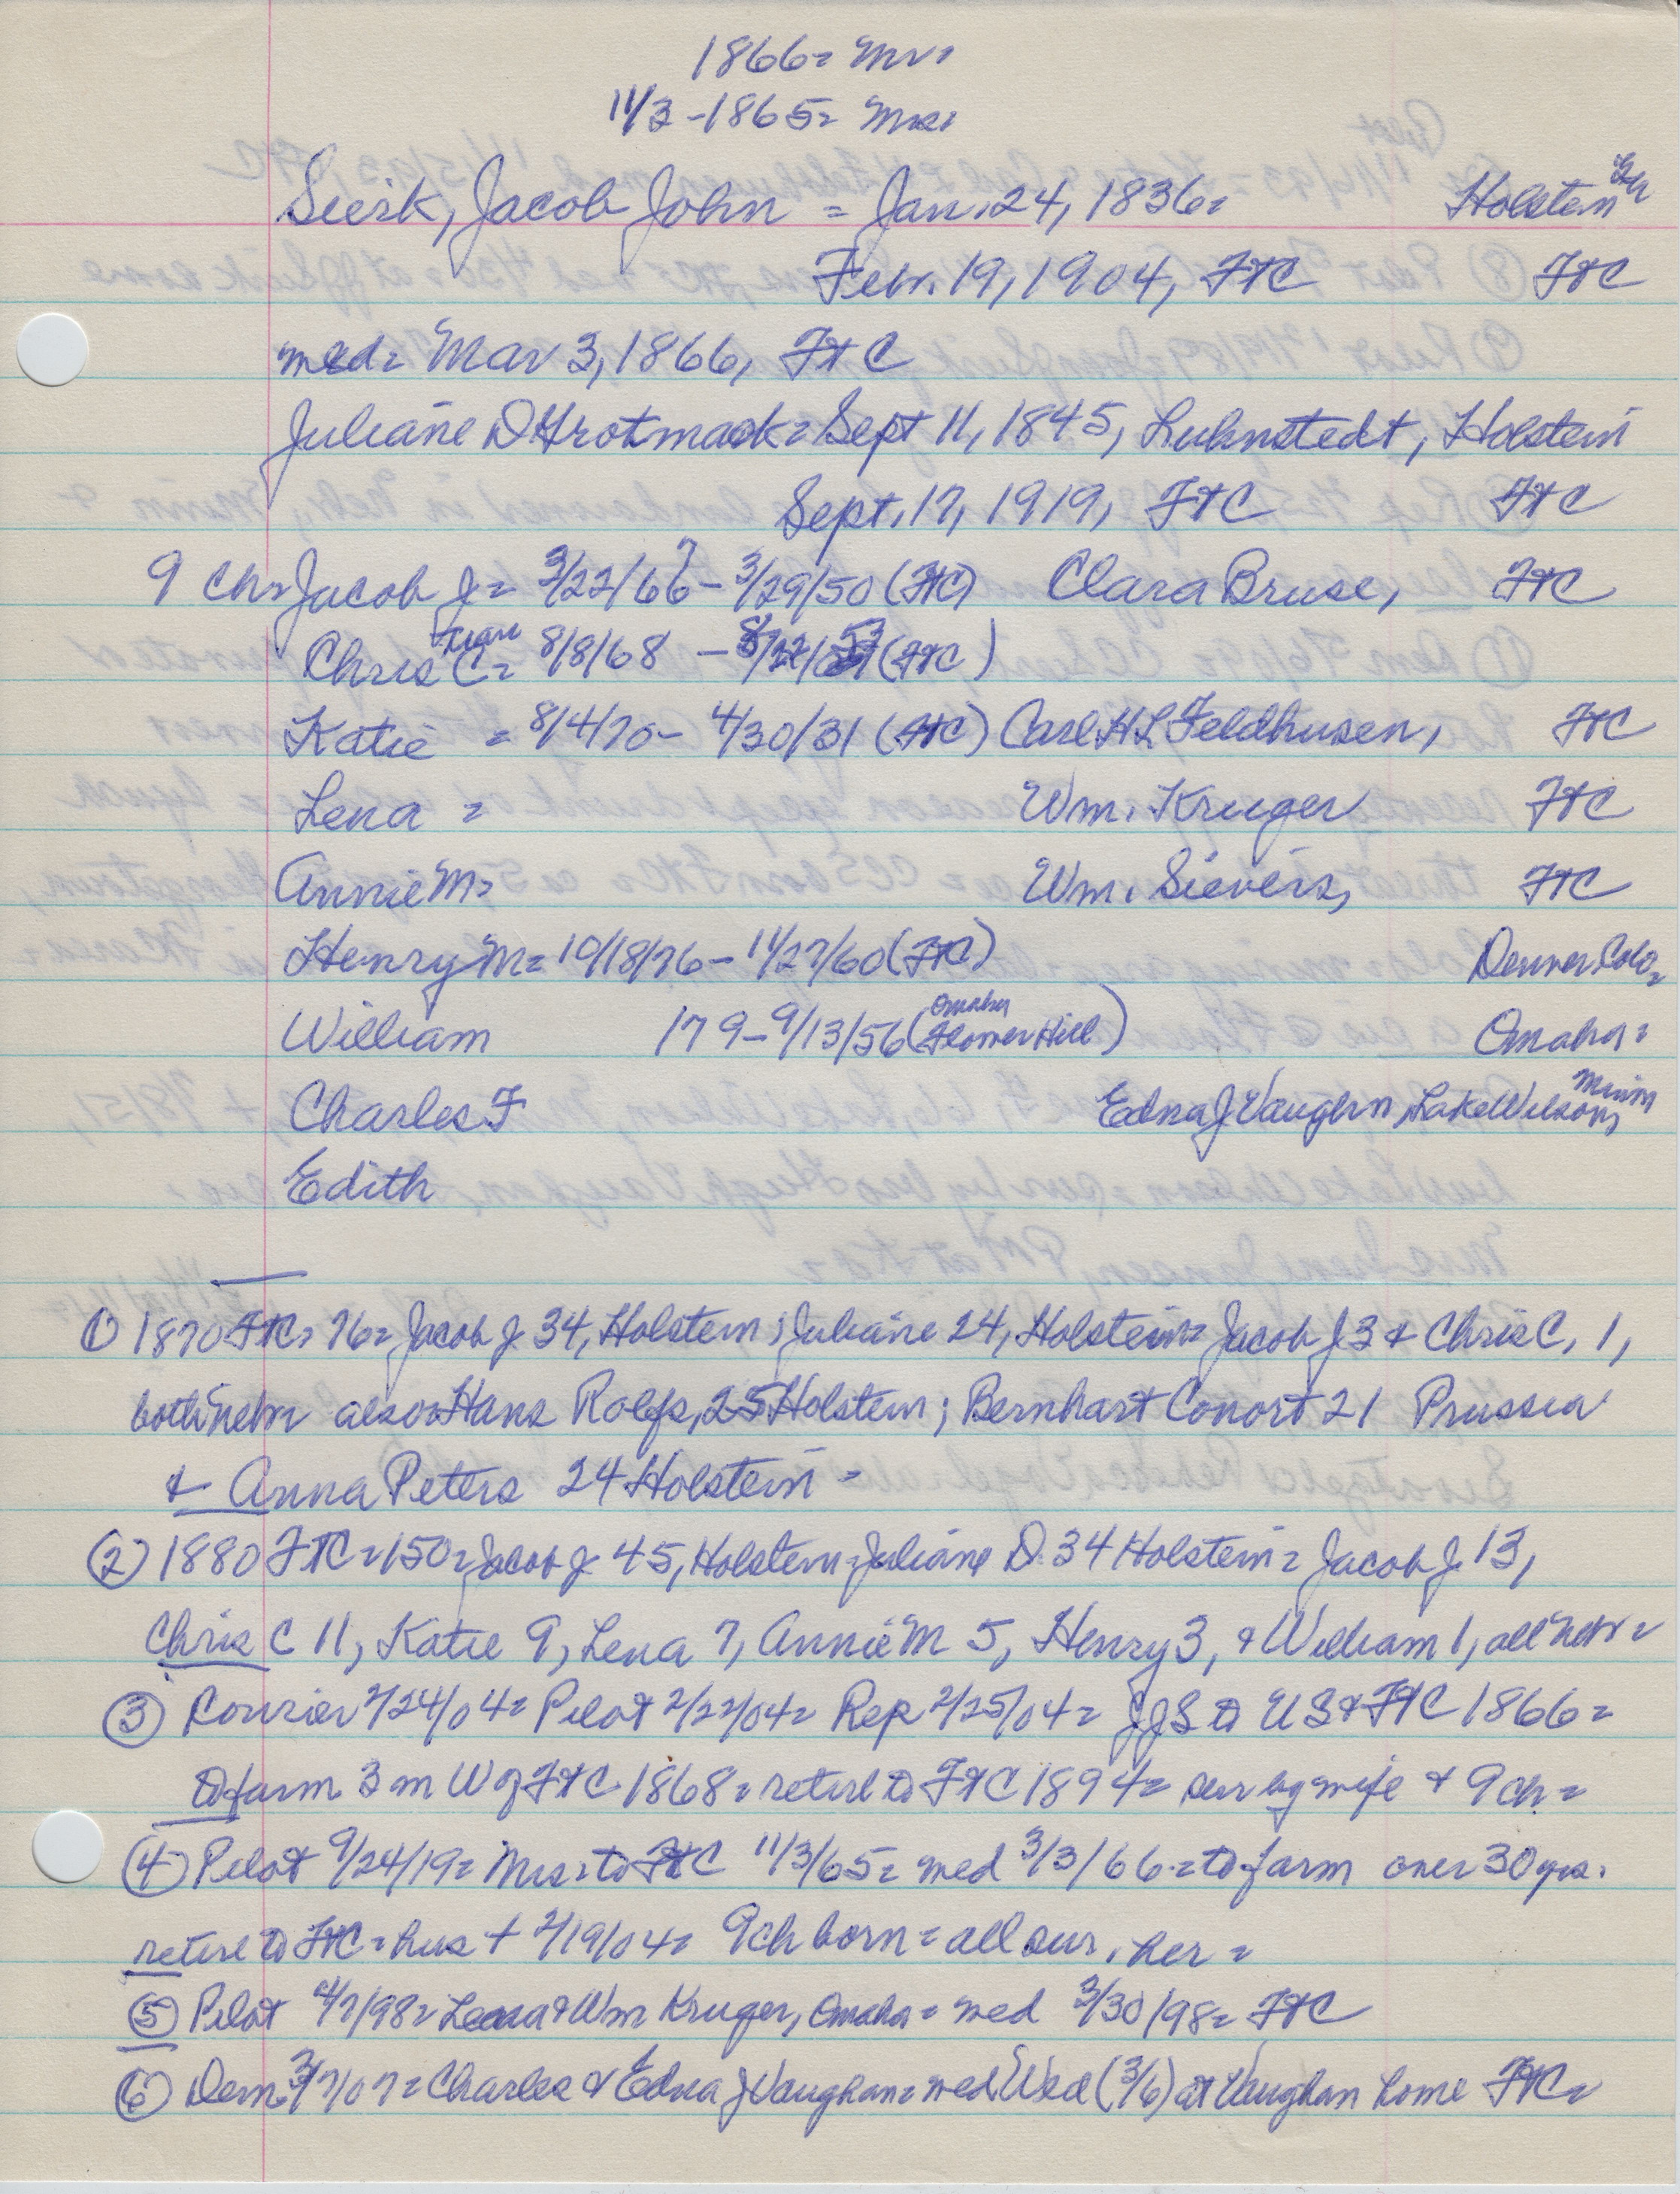 1866= Mr=
11/3-1865= Mrs=
Sierk, Jacob John = Jan. 24, 1836= Holstein
Febr. 19, 1904, FtC FtC
med= Mar 3, 1866, FtC
Juliane D Grotmack= Sept 11, 1845, Luhnstedt, Holstein
Sept. 17, 1919, FtC FtC
9 ch= Jacob J= 3/22/66 7 - 3/29/50 (FtC) Clara Bruse, FtC
Chris C= 8/8/68 - 8/22/53 (FtC)
Katie = 8/4/70- 4/30/31 (FtC) Carl H L Feldhusen, FtC
Lena = Wm. Kruger FtC
Annie M= Wm. Sievers, FtC
Henry M= 10/18/76- 11/27/60 (FtC) Denver Colo=
William 179- 9/13/56 (Omaha Flower Hill) Omaha=
Charles F Edna J Vaughn, Lake Wilson, Minn
Edith
① 1870 FtC= 76= Jacob J 34, Holstein; Juliane 24, Holstein= Jacob J 3 & Chris C, 1,
both Nebr also= Hans Rolfs, 25 Holstein; Bernhart Conort 21 Prussia
& Anna Peters 24 Holstein =
② 1880 FtC= 150= Jacob J 45, Holstein= Juliane D 34 Holstein= Jacob J 13,
Chris C 11, Katie 9, Lena 7, Annie M 5, Henry 3, & William 1, all Nebr=
③ Courier 2/24/04= Pilot 2/22/04= Rep 2/25/04= JJS to US & FtC 1866=
to farm 3 m W of FtC 1868= retire to FtC 1894= sur by wife & 9 ch=
④ Pilot 9/24/19= Mrs= to FtC 11/3/65= med 3/3/66= to farm over 30 yrs.
retire to FtC= hus + 2/19/04= 9 ch born= all sur. her=
⑤ Pilot 4/7/98= Lena & Wm Kruger, Omaha= med 3/30/98= FtC
⑥ Dem. 3/7/07= Charles & Edna J Vaughan= med Wed (3/6) at Vaughan home FtC=